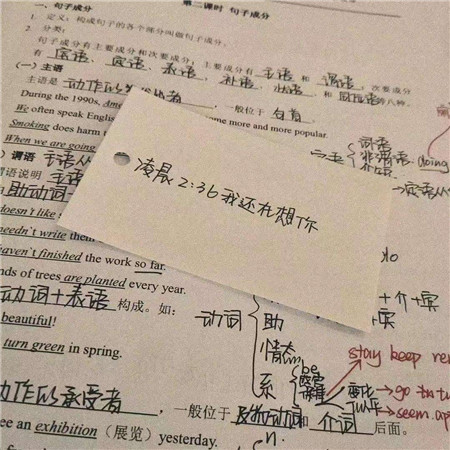 第二课时 句子成分
一、句子成分
1. 定义：构成句子的各个部分叫做句子成分。
2. 分类：
句子成分有主要成分和次要成分；主要成分有 主语 和 谓语；次要成分
有 宾语、定语、表语、补语、状语 和 同位语等八种。
(一) 主语
主语是 动作的发出者，一般位于 句首。
During the 1990s,
more and more popular.
We often speak Englis
Smoking does harm t
When we are going
谓语
谓语说明
助动词
doesn't like
needn't write them
haven't finished the work so far.
nds of trees are planted every year.
动词+表语 构成。如：
beautiful!
turn green in spring.
动作的承受者，一般位于 及物动词和 介词 后面。
ee an exhibition（展览）yesterday.
凌晨2:36我还在想你
词语
非谓语 doing
do
+介+宾
动词
助
情态
系
be
stay keep
变化 → go
→ seem
n.